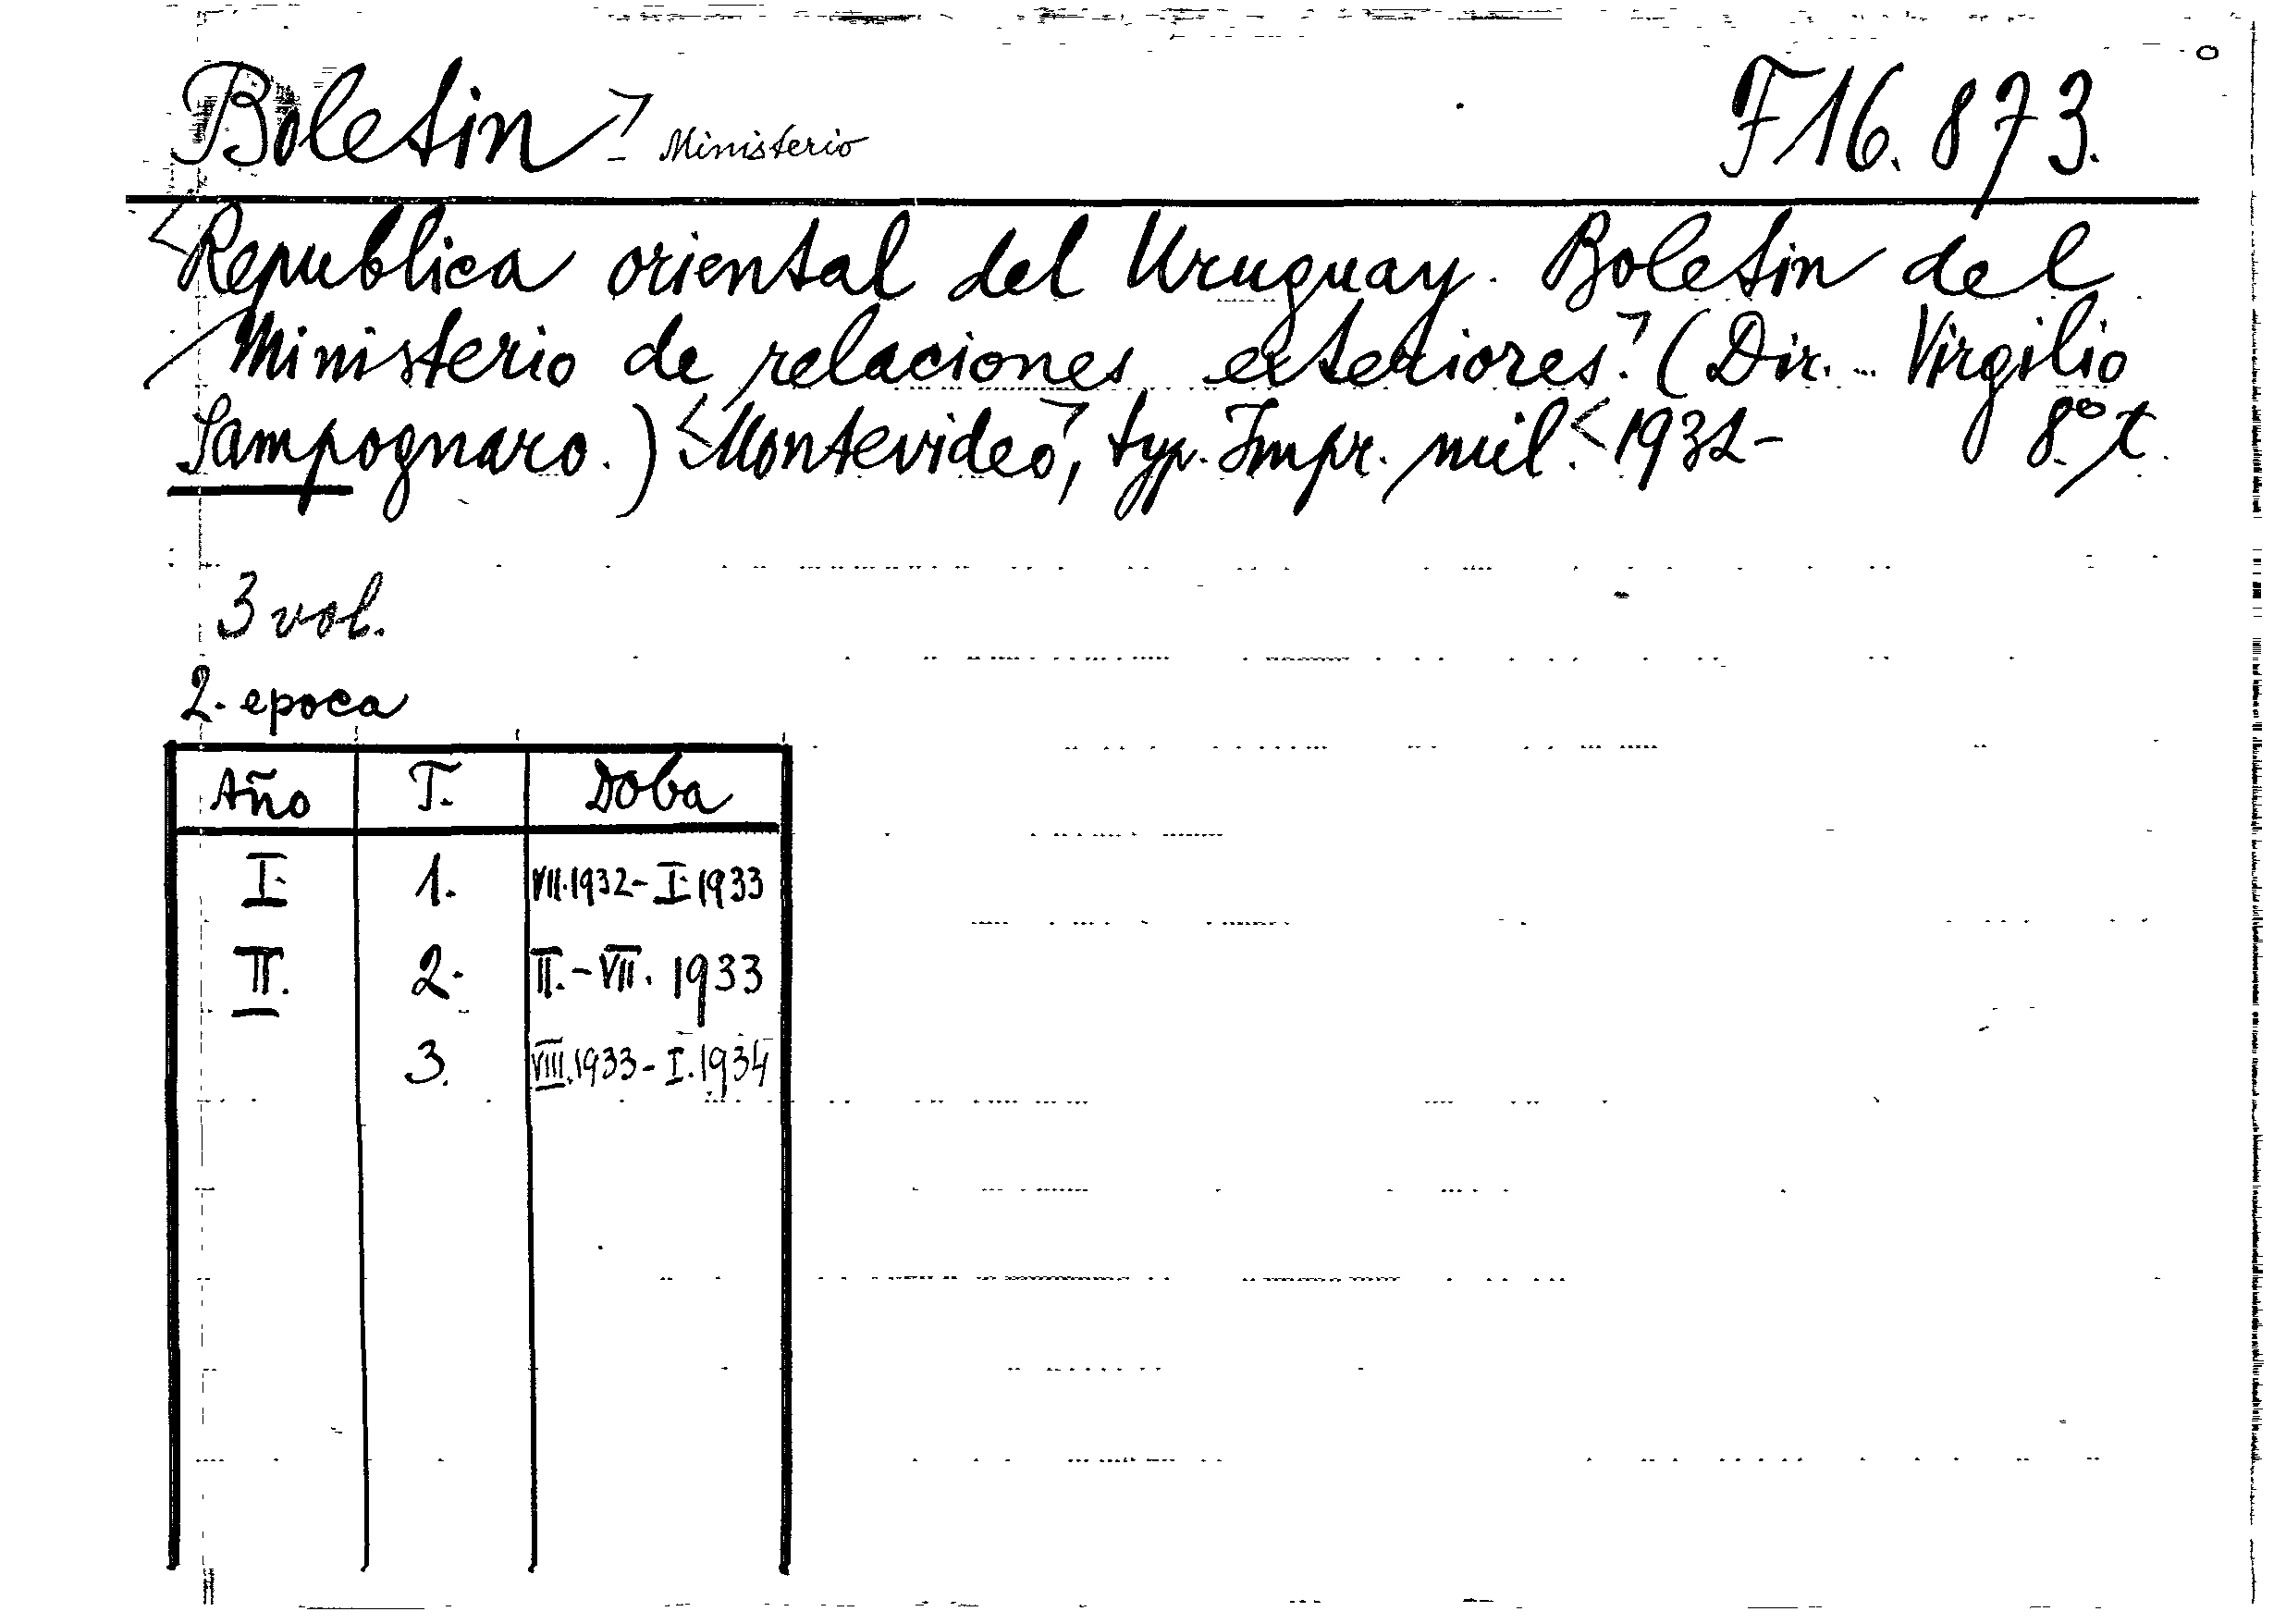 Boletin - Ministerio F 16.873.
<Republica oriental del Uruguay. Boletin del
Ministerio de relaciones exteriores.> (Dir... Virgilio
Sampognaro.) <Montevideo>, typ. Impr. mil. <1932- 8° t.
3 vol.
2. epoca
Año T. Doba
I. 1. VII.1932-I.1933
II. 2. II.-VII. 1933
3. VIII.1933-I.1934